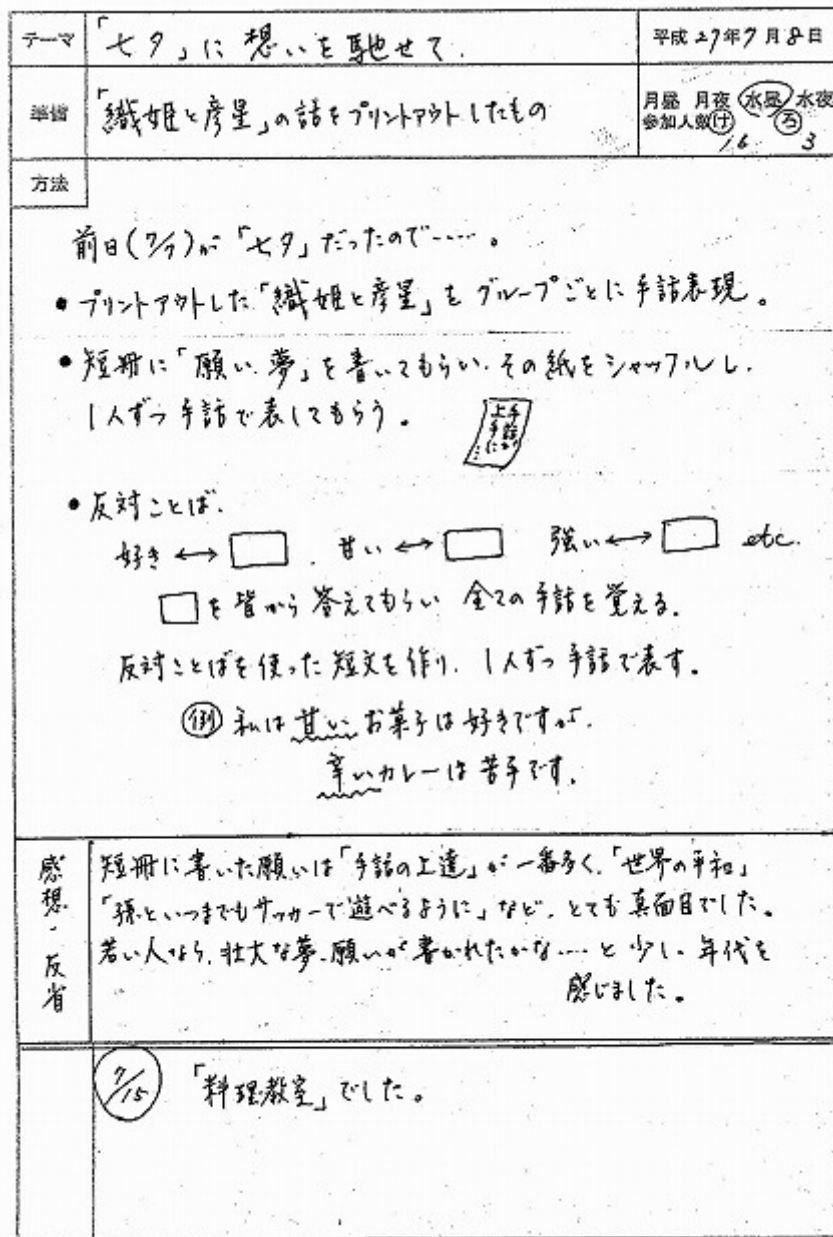 テーマ 「七夕」に想いを馳せて.
平成27年7月8日
準備 「織姫と彦星」の話をプリントアウトしたもの
月昼 月夜 水昼 水夜
参加人数 け 16 ろ 3
方法
前日(7/7)が「七夕」だったので……。
• プリントアウトした「織姫と彦星」をグループごとに手話表現。
• 短冊に「願い.夢」を書いてもらい.その紙をシャッフルし.
1人ずつ手話で表してもらう。
手話が
上手に…
• 反対ことば.
好き ↔ □ . 甘い ↔ □ 強い ↔ □ etc.
□を皆から答えてもらい 全ての手話を覚える.
反対ことばを使った短文を作り. 1人ずつ手話で表す。
例 私は甘いお菓子は好きですが.
辛いカレーは苦手です.
感想・反省
短冊に書いた願いは「手話の上達」が一番多く.「世界の平和」
「孫といつまでもサッカーで遊べるように」など.とても真面目でした。
若い人なら.壮大な夢.願いが書かれたかな……と少し.年代を
感じました。
7/15 「料理教室」でした。